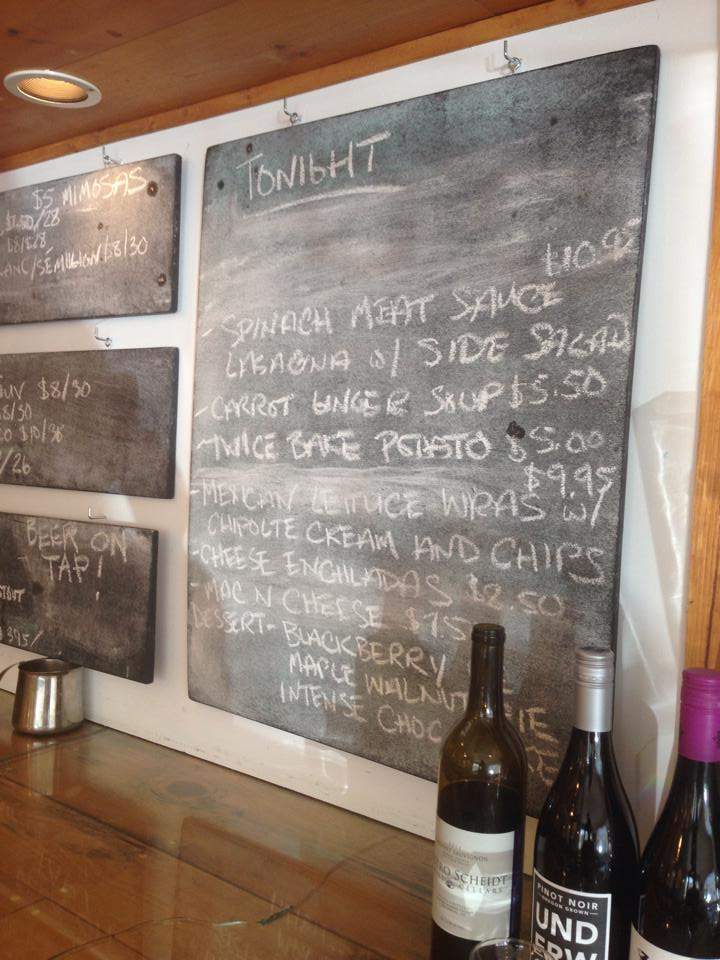 $5 MIMOSAS
/28
/SEMILLION/$8/30
$8/30
$10/36
/26
BEER ON
TAP!
STOUT
TONIGHT
$10.95
- SPINACH MEAT SAUCE
LASAGNA W/ SIDE SALAD
- CARROT GINGER SOUP $5.50
- TWICE BAKE POTATO $5.00
$9.95
- MEXICAN LETTUCE WRAPS W/
CHIPOLTE CREAM AND CHIPS
- CHEESE ENCHILADAS $2.50
- MAC N CHEESE $7.5
DESSERT - BLACKBERRY
MAPLE WALNUT PIE
INTENSE CHOC
SAUVIGNON
RO SCHEIDT
CELLARS
PINOT NOIR
OREGON GROWN
UND
ERW